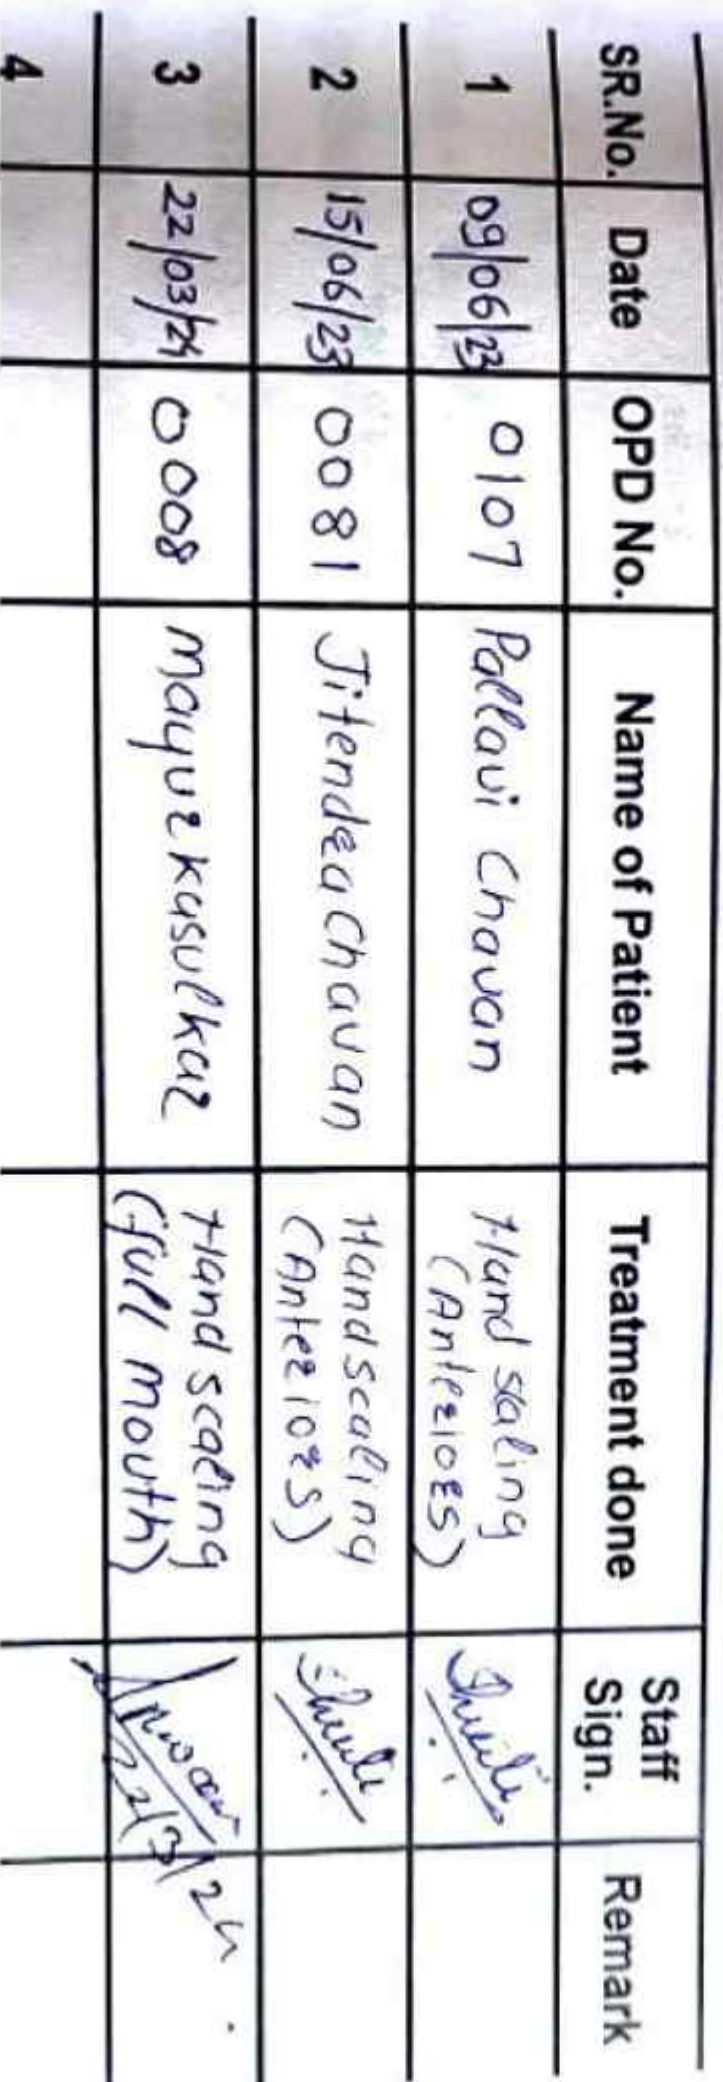 SR.No. Date OPD No. Name of Patient Treatment done Staff Sign. Remark
1 09/06/23 0107 Pallavi Chavan Hand scaling
(Anteriors)
2 15/06/23 0081 Jitendra Chavan Hand scaling
(Anteriors)
3 22/03/24 0008 Mayur Kasulkar Hand scaling
(full mouth)
22/3/24
4